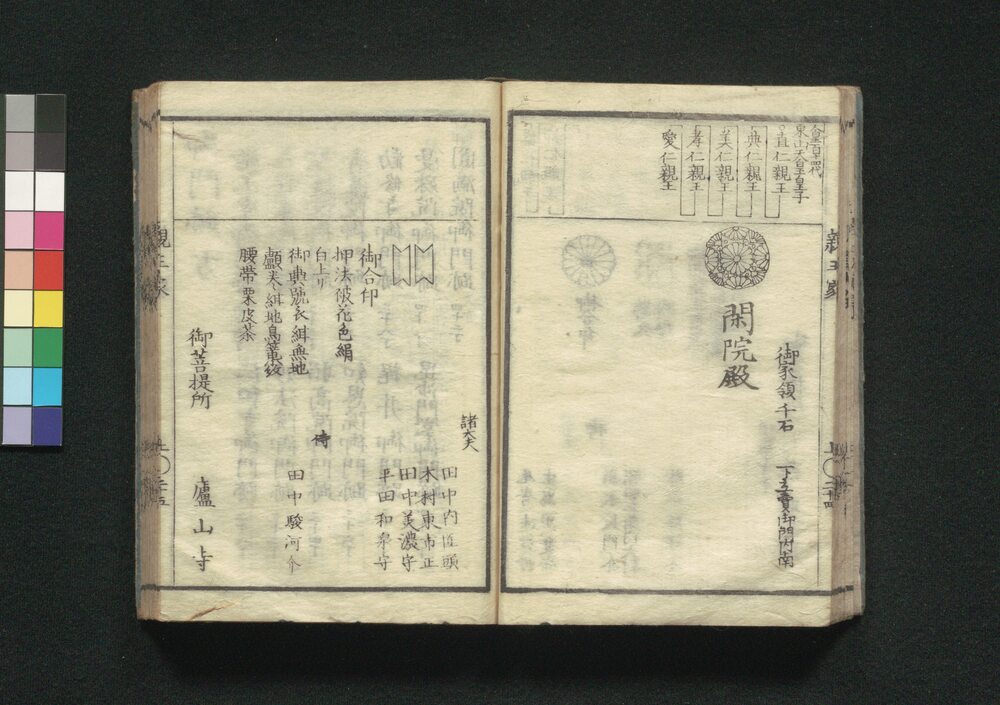 人皇百十四代
東山天皇皇子
直仁親王
典仁親王
美仁親王
孝仁親王
愛仁親王
御家領千石
下立賣御門内南
閑院殿
親王家
上〇二十四
諸大夫
田中内匠頭
木村東市正
田中美濃守
平田和泉守
御合印
押法被花色絹
白上リ
侍
田中駿河介
御輿麁衣紺無地
腰帯栗皮茶
御菩提所
廬山寺
親王家
上〇二十五